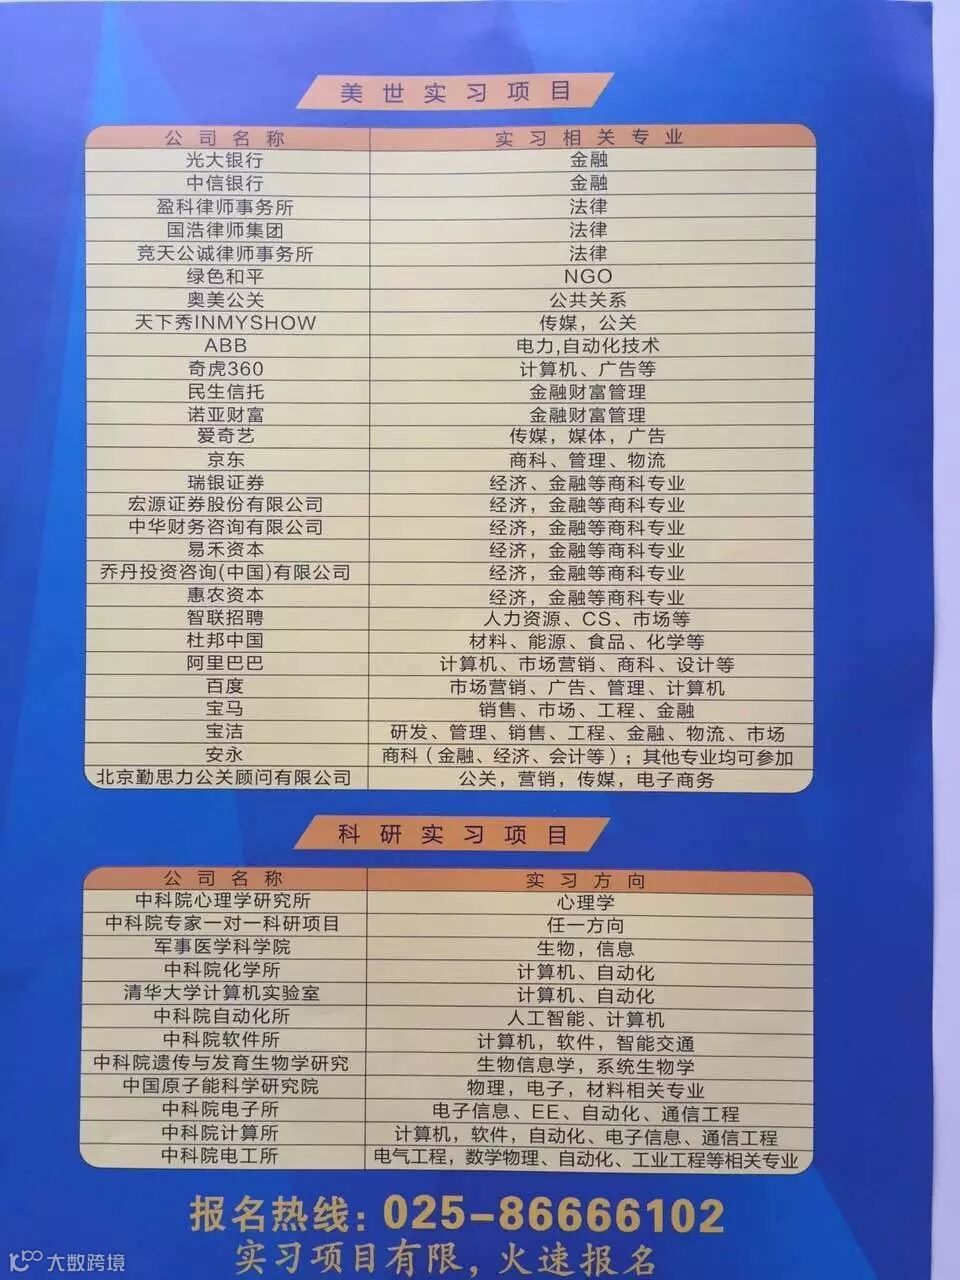 美世实习项目
公司名称 实习相关专业
光大银行 金融
中信银行 金融
盈科律师事务所 法律
国浩律师集团 法律
竞天公诚律师事务所 法律
绿色和平 NGO
奥美公关 公共关系
天下秀INMYSHOW 传媒，公关
ABB 电力,自动化技术
奇虎360 计算机、广告等
民生信托 金融财富管理
诺亚财富 金融财富管理
爱奇艺 传媒，媒体，广告
京东 商科、管理、物流
瑞银证券 经济、金融等商科专业
宏源证券股份有限公司 经济，金融等商科专业
中华财务咨询有限公司 经济，金融等商科专业
易禾资本 经济，金融等商科专业
乔丹投资咨询(中国)有限公司 经济，金融等商科专业
惠农资本 经济，金融等商科专业
智联招聘 人力资源、CS、市场等
杜邦中国 材料、能源、食品、化学等
阿里巴巴 计算机、市场营销、商科、设计等
百度 市场营销、广告、管理、计算机
宝马 销售、市场、工程、金融
宝洁 研发、管理、销售、工程、金融、物流、市场
安永 商科（金融、经济、会计等）；其他专业均可参加
北京勤思力公关顾问有限公司 公关，营销，传媒，电子商务
科研实习项目
公司名称 实习方向
中科院心理学研究所 心理学
中科院专家一对一科研项目 任一方向
军事医学科学院 生物，信息
中科院化学所 计算机、自动化
清华大学计算机实验室 计算机、自动化
中科院自动化所 人工智能、计算机
中科院软件所 计算机，软件，智能交通
中科院遗传与发育生物学研究 生物信息学，系统生物学
中国原子能科学研究院 物理，电子，材料相关专业
中科院电子所 电子信息、EE、自动化、通信工程
中科院计算所 计算机，软件，自动化、电子信息、通信工程
中科院电工所 电气工程，数学物理、自动化、工业工程等相关专业
报名热线：025-86666102
实习项目有限，火速报名
大数跨境